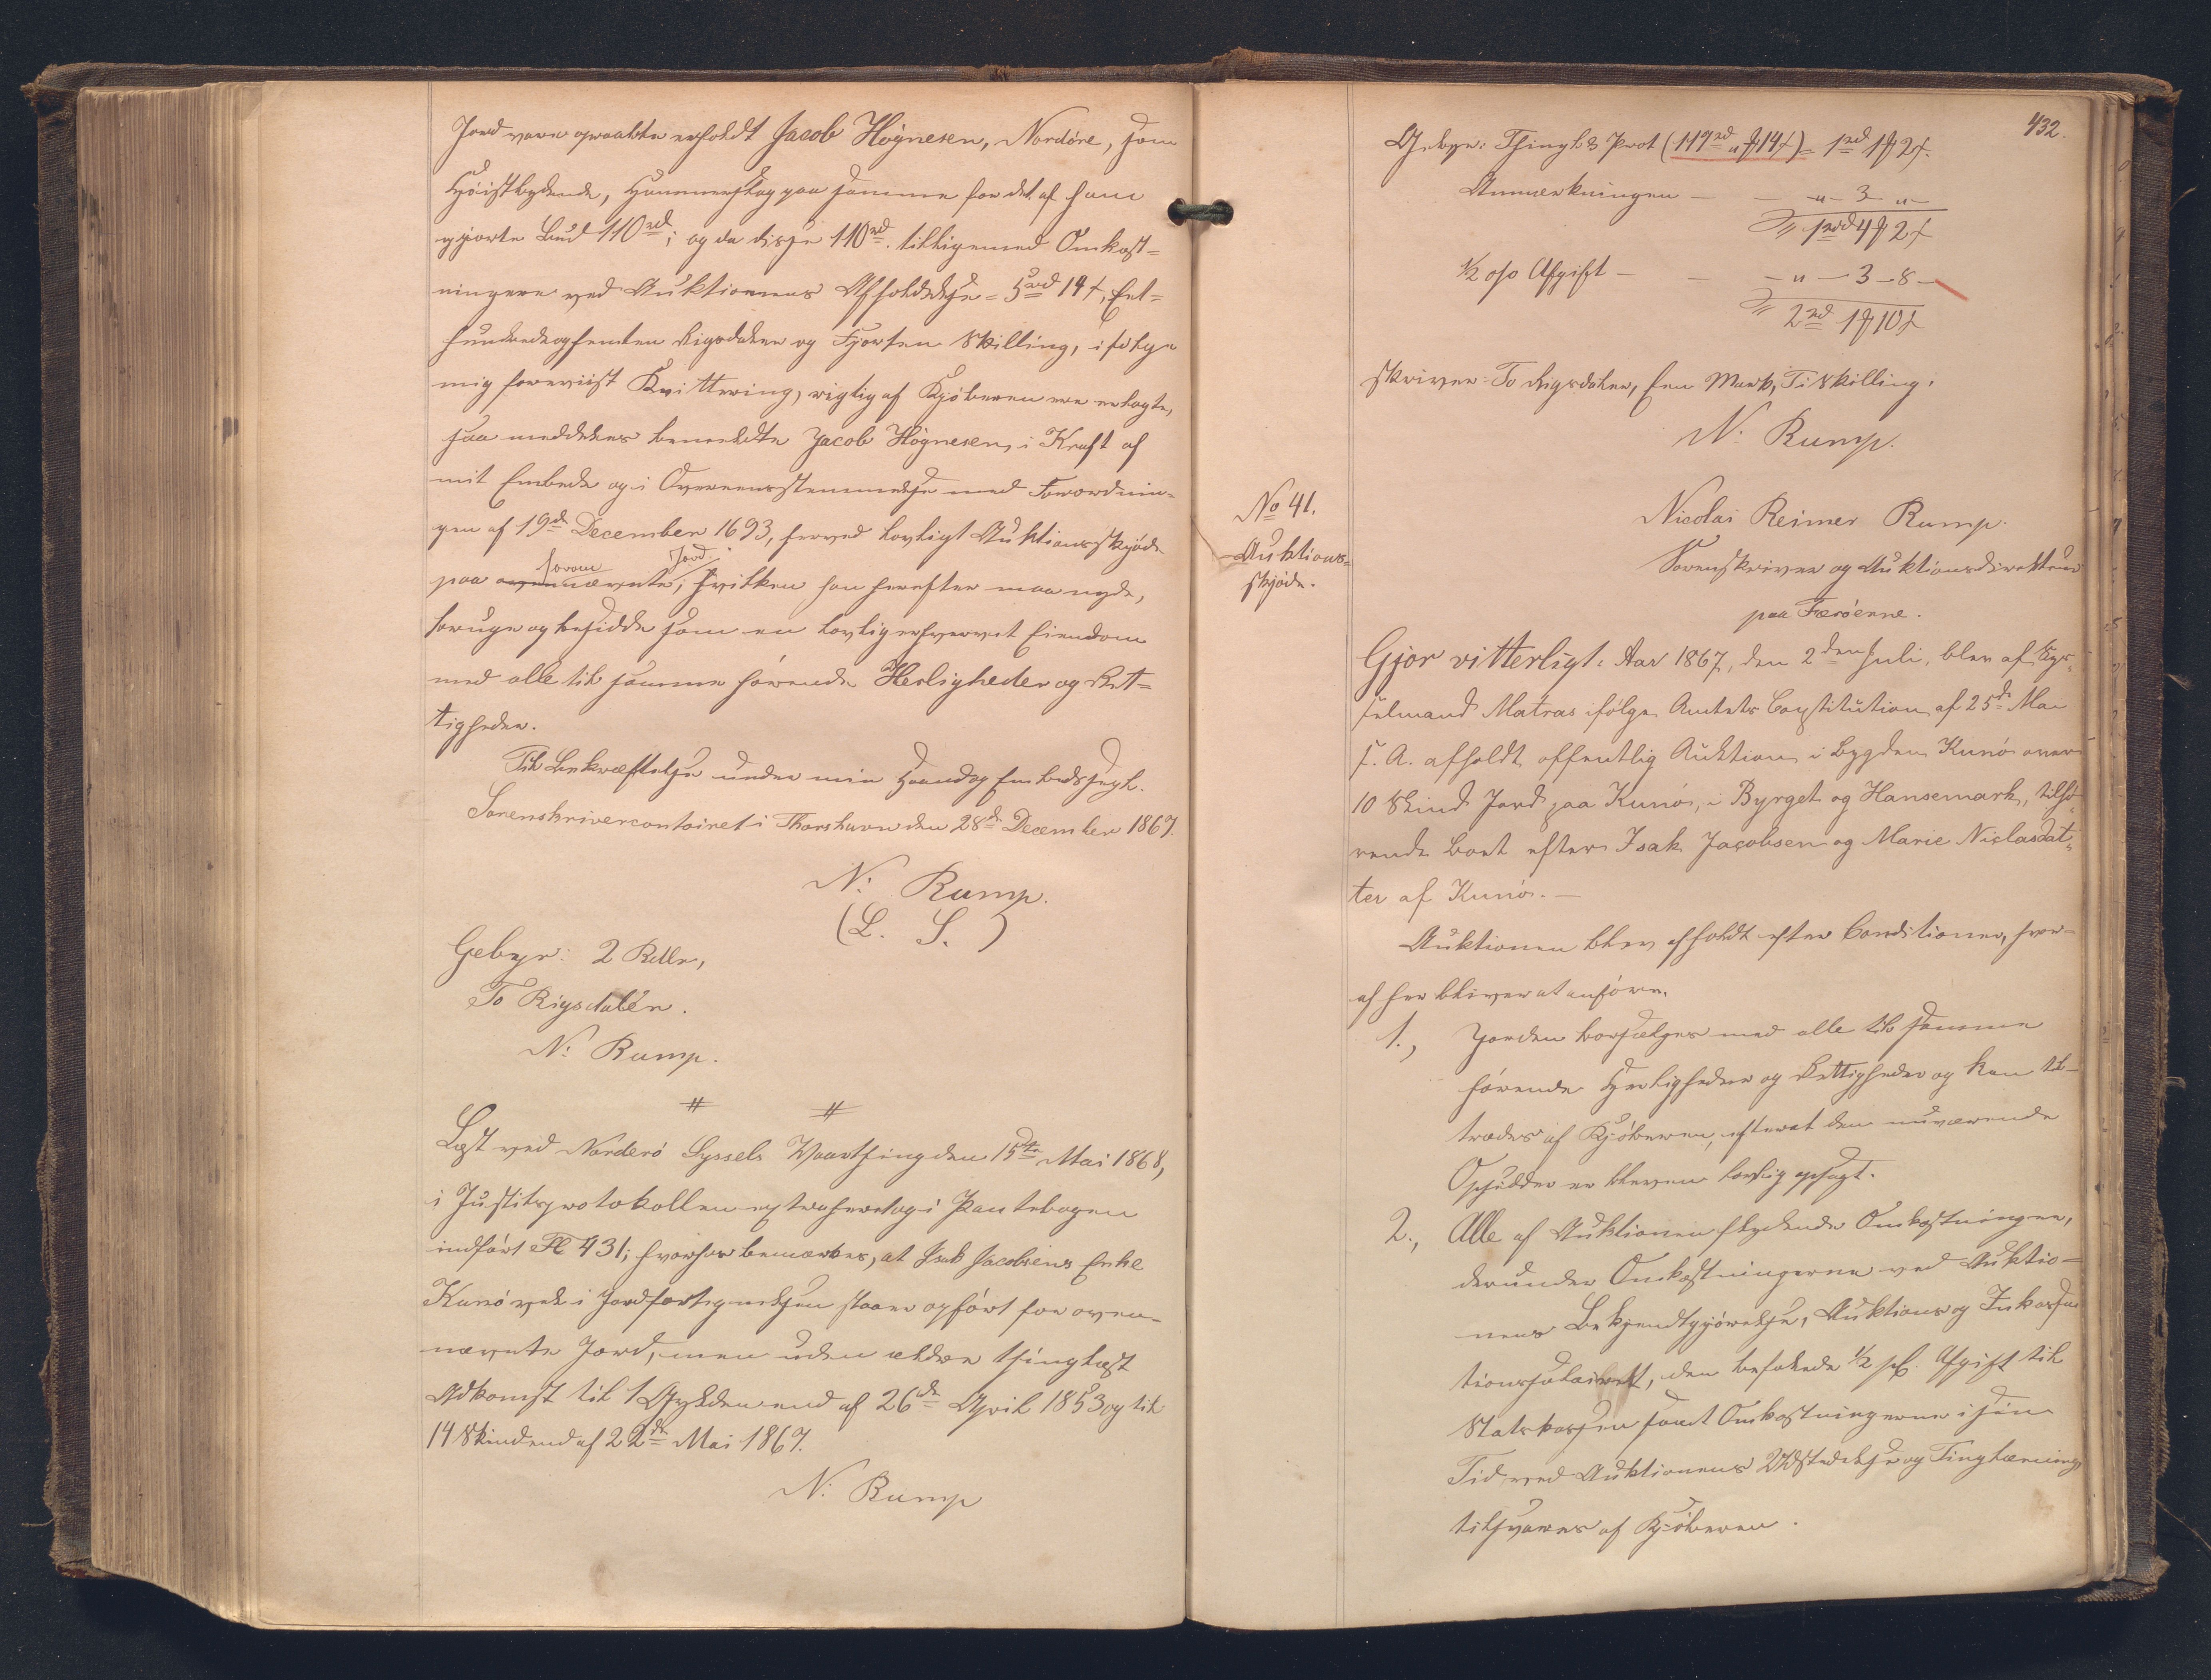 Jord vare opraabte erholdt Jacob Høgnesen, Nordöre, som
Høistbydende, Hammerslag paa samme for det af ham
gjorte Bud 110 rd; og da disse 110 rd. tilligemed Omkost=
ningerne ved Auktionens Afholdelse = 5 rd 14 ß, Et=
hundredeogfemten Rigsdaler og Fjorten Skilling, ifølge
mig foreviist Kvittering, rigtig af Kjøberen ere erlagte,
saa meddeles bemeldte Jacob Högnesen, i Kraft af
mit Embede og i Overeensstemmelse med Forordnin=
gen af 19de December 1693, herved lovligt Auktionsskjøde
paa ovennævnte, hvilken han herefter maa nyde,
forom Jord
bruge og besidde som en lovlig erhvervet Eiendom
med alle til samme hørende Herligheder og Ret=
tigheder.
Til Bekræftelse under min Haand og Embedssegl.
Sorenskrivercontoiret i Thorshavn den 28de December 1867.
N: Rump.
(L. S.)
Gebyr: 2 Rdlr,
To Rigsdaler.
N: Rump.
Læst ved Norderö Syssels Vaarthing den 15de Mai 1868,
i Justitsprotokollen extraheret og i Pantebogen
indført Fol 431; hvorhos bemærkes, at Isak Jacobsens Enke
Kunö vel i Jordfortegnelsen staaer opført for oven=
nævnte Jord, men uden ældre thinglæst
Adkomst til 1 Gylden end af 26de April 1853 og til
14 Skind end af 22de Mai 1867.
N: Rump
432.
Gebyr: Thingl & Prot (115 rd " ƒ 14 ß) = 1 rd 1 ƒ 2 ß.
Anmærkningen — — " — 3 — " —
1 rd 4 ƒ 2 ß
½ o/o Afgift — — " — 3 — 8 —
2 rd 1 ƒ 10 ß
skriver To Rigsdaler, Een Mark, Ti Skilling.
N: Rump.
No 41.
Auktions=
skjøde.
Nicolai Reimer Rump.
Sorenskriver og Auktionsdirekteur
paa Færöerne.
Gjør vitterligt: Aar 1867, den 2den Juli, blev af Sys=
selmand Matras ifølge Amtets Constitution af 25de Mai
s. A. afholdt offentlig Auktion i Bygden Kunö over
10 Skind Jord paa Kunö, i Byrget og Hansemark, tilhø=
rende Boet efter Isak Jacobsen og Marie Niclasdat=
ter af Kunö. —
Auktionen blev afholdt efter Conditioner, hvor=
af her bliver at anføre.
1., Jorden bortsælges med alle til samme
hørende Herligheder og Rettigheder og kan til=
trædes af Kjøberen, efterat den nuværende
Opsidder er bleven lovlig opsagt.
2., Alle af Auktionen flydende Omkostninger,
derunder Omkostningerne ved Auktio=
nens Bekjendtgjørelse, Auktions og Inkassa
tionssalairet, den befalede ½ pC. Afgift til
Statskassen samt Omkostningerne i sin
Tid ved Auktionens Udstedelse og Tinglæsning
tilsvares af Kjøberen.